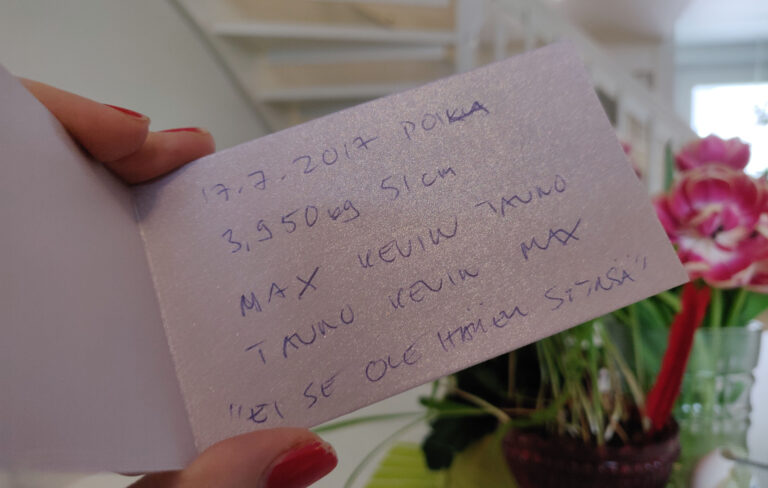 17.7.2017 POIKA
3,950kg 51cm
MAX KEVIN TAUNO
TAUNO KEVIN MAX
"EI SE OLE HÄNEN SIINSÄ"